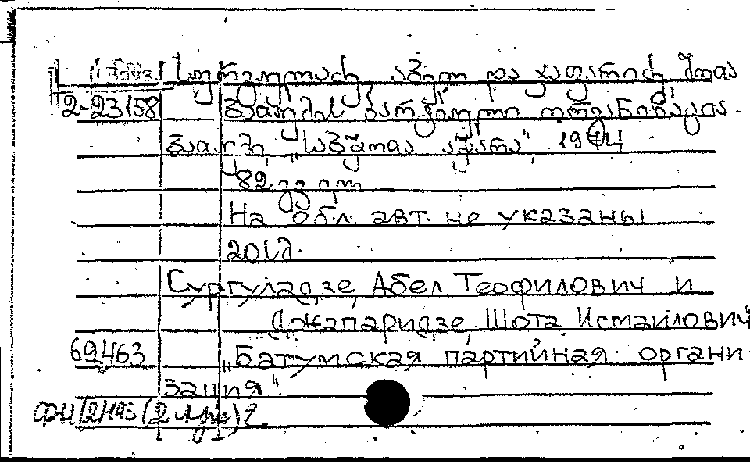 სურგულაძე აბელ და ჯაფარიძე შოთა
2-23158 ბათუმის პარტიული ორგანიზაცია
ბათუმი, "საბჭოთა აჭარა", 1944
82 გვ.
На обл. авт. не указаны
20128
Сургуладзе, Абел Теофилович и
Джапаридзе, Шота Исмаилович
69463 "Батумская партийная органи
зация"